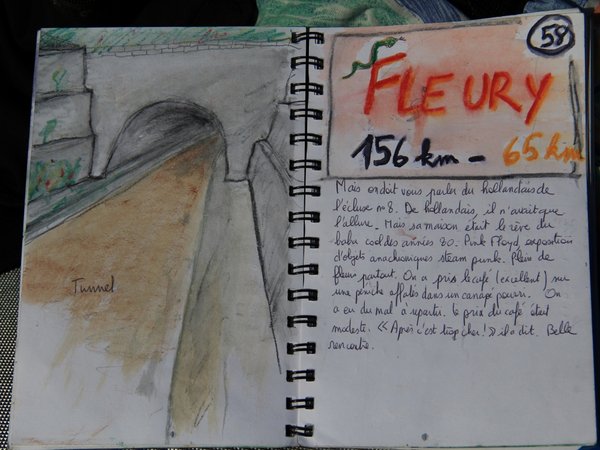 Tunnel
58
FLEURY
156 km - 65 km
Mais on doit vous parler du hollandais de
l'écluse n° 8. De hollandais, il n'avait que
l'allure. Mais sa maison était le rêve du
baba cool des années 80. Pink Floyd, exposition
d'objets anachroniques steam punk. Plein de
fleurs partout. On a pris le café (excellent) sur
une péniche affalés dans un canapé pourri. On
a eu du mal a repartir. le prix du café était
modeste. << Après c'est trop cher! >> il a dit. Belle
rencontre.